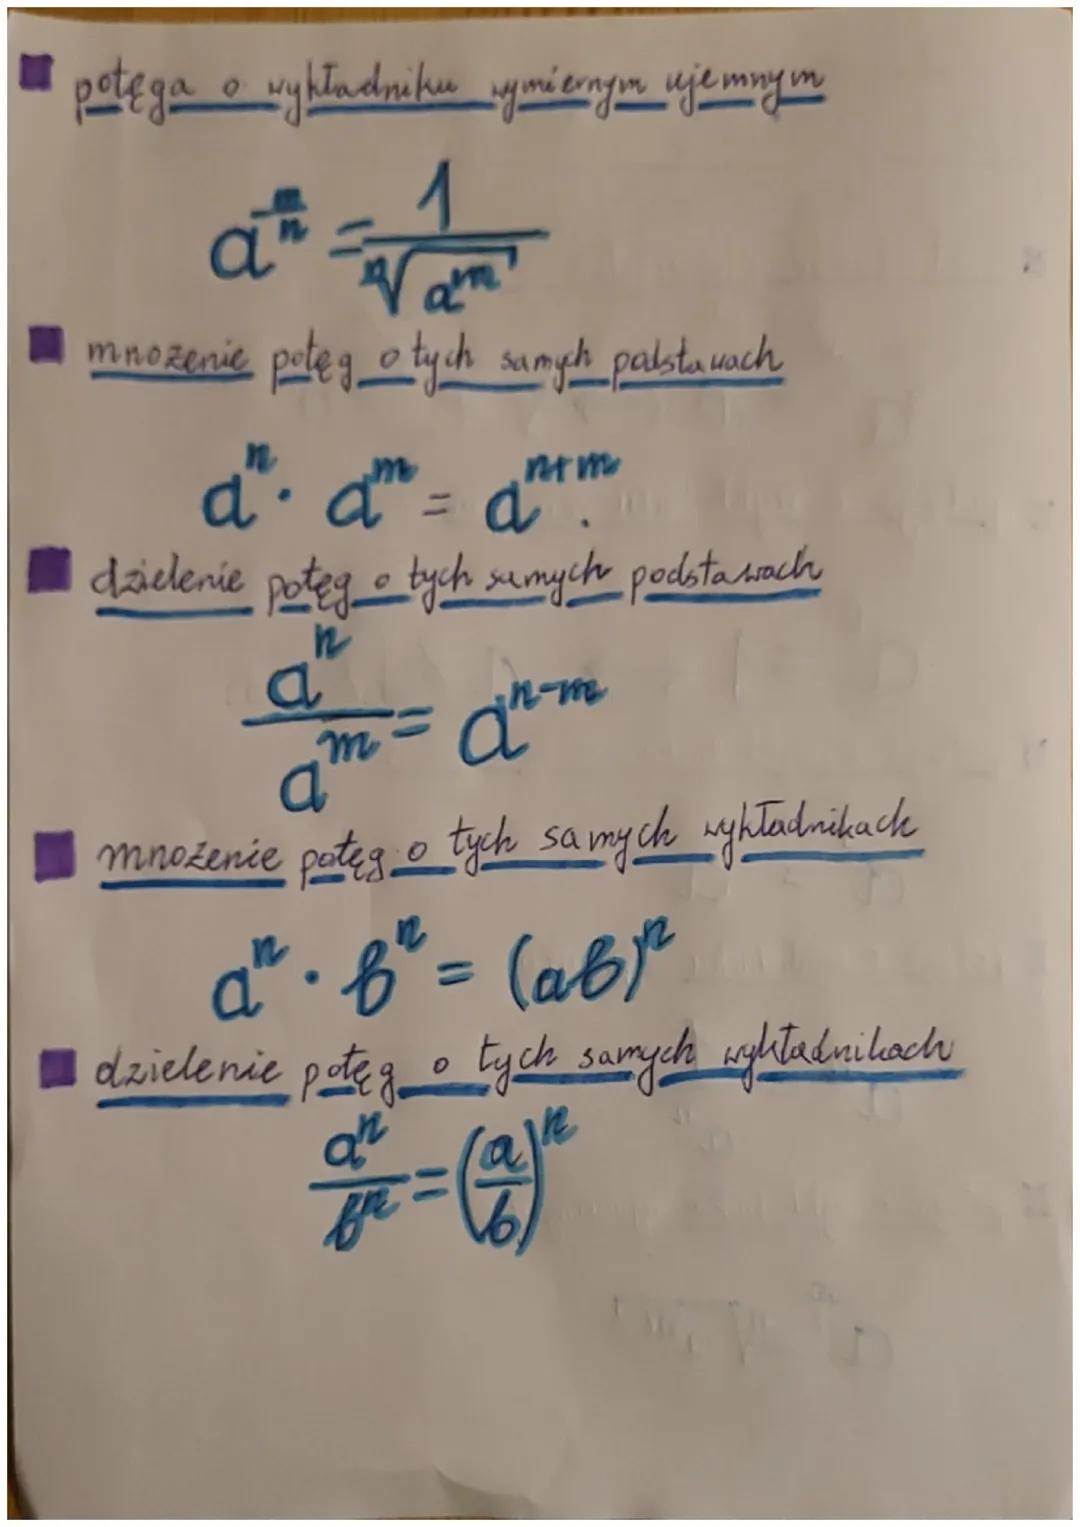 potęga o wykładniku wymiernym ujemnym
a^{-\frac{m}{n}} = \frac{1}{\sqrt[n]{a^m}}
mnożenie potęg o tych samych podstawach
a^n · a^m = a^{n+m}.
dzielenie potęg o tych samych podstawach
\frac{a^n}{a^m} = a^{n-m}
mnożenie potęg o tych samych wykładnikach
a^n · b^n = (ab)^n
dzielenie potęg o tych samych wykładnikach
\frac{a^n}{b^n} = \left(\frac{a}{b}\right)^n